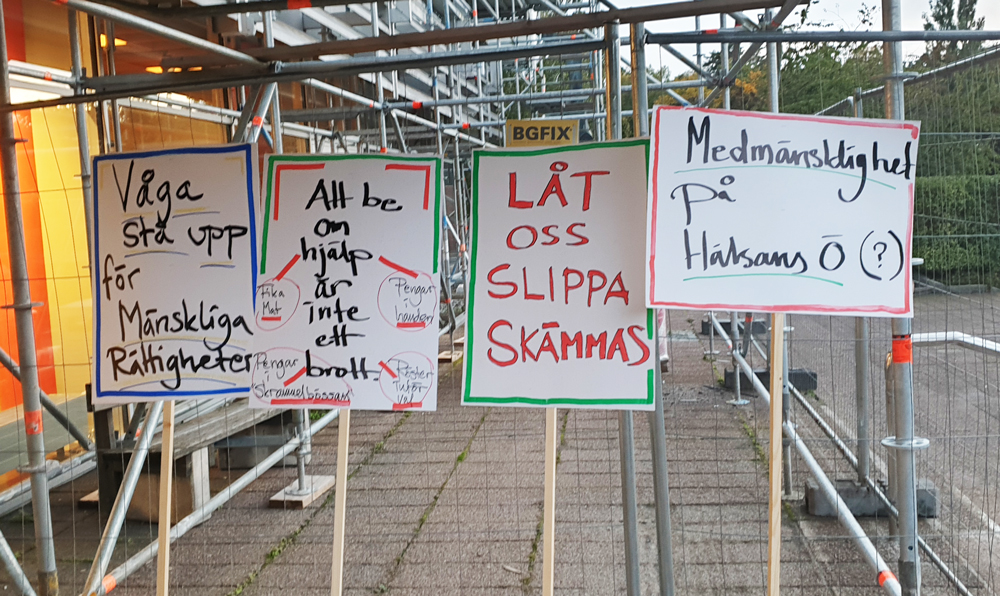 BGFIX
Våga
stå upp
för
Mänskliga
Rättigheter
Att be
om
hjälp
är
inte
ett
brott.
Fika
Mat
Pengar
i
handen
Pengar
i
Skrammelbössan
Röster
inför
val
LÅT
OSS
SLIPPA
SKÄMMAS
Medmänsklighet
på
Hälsans Ö (?)